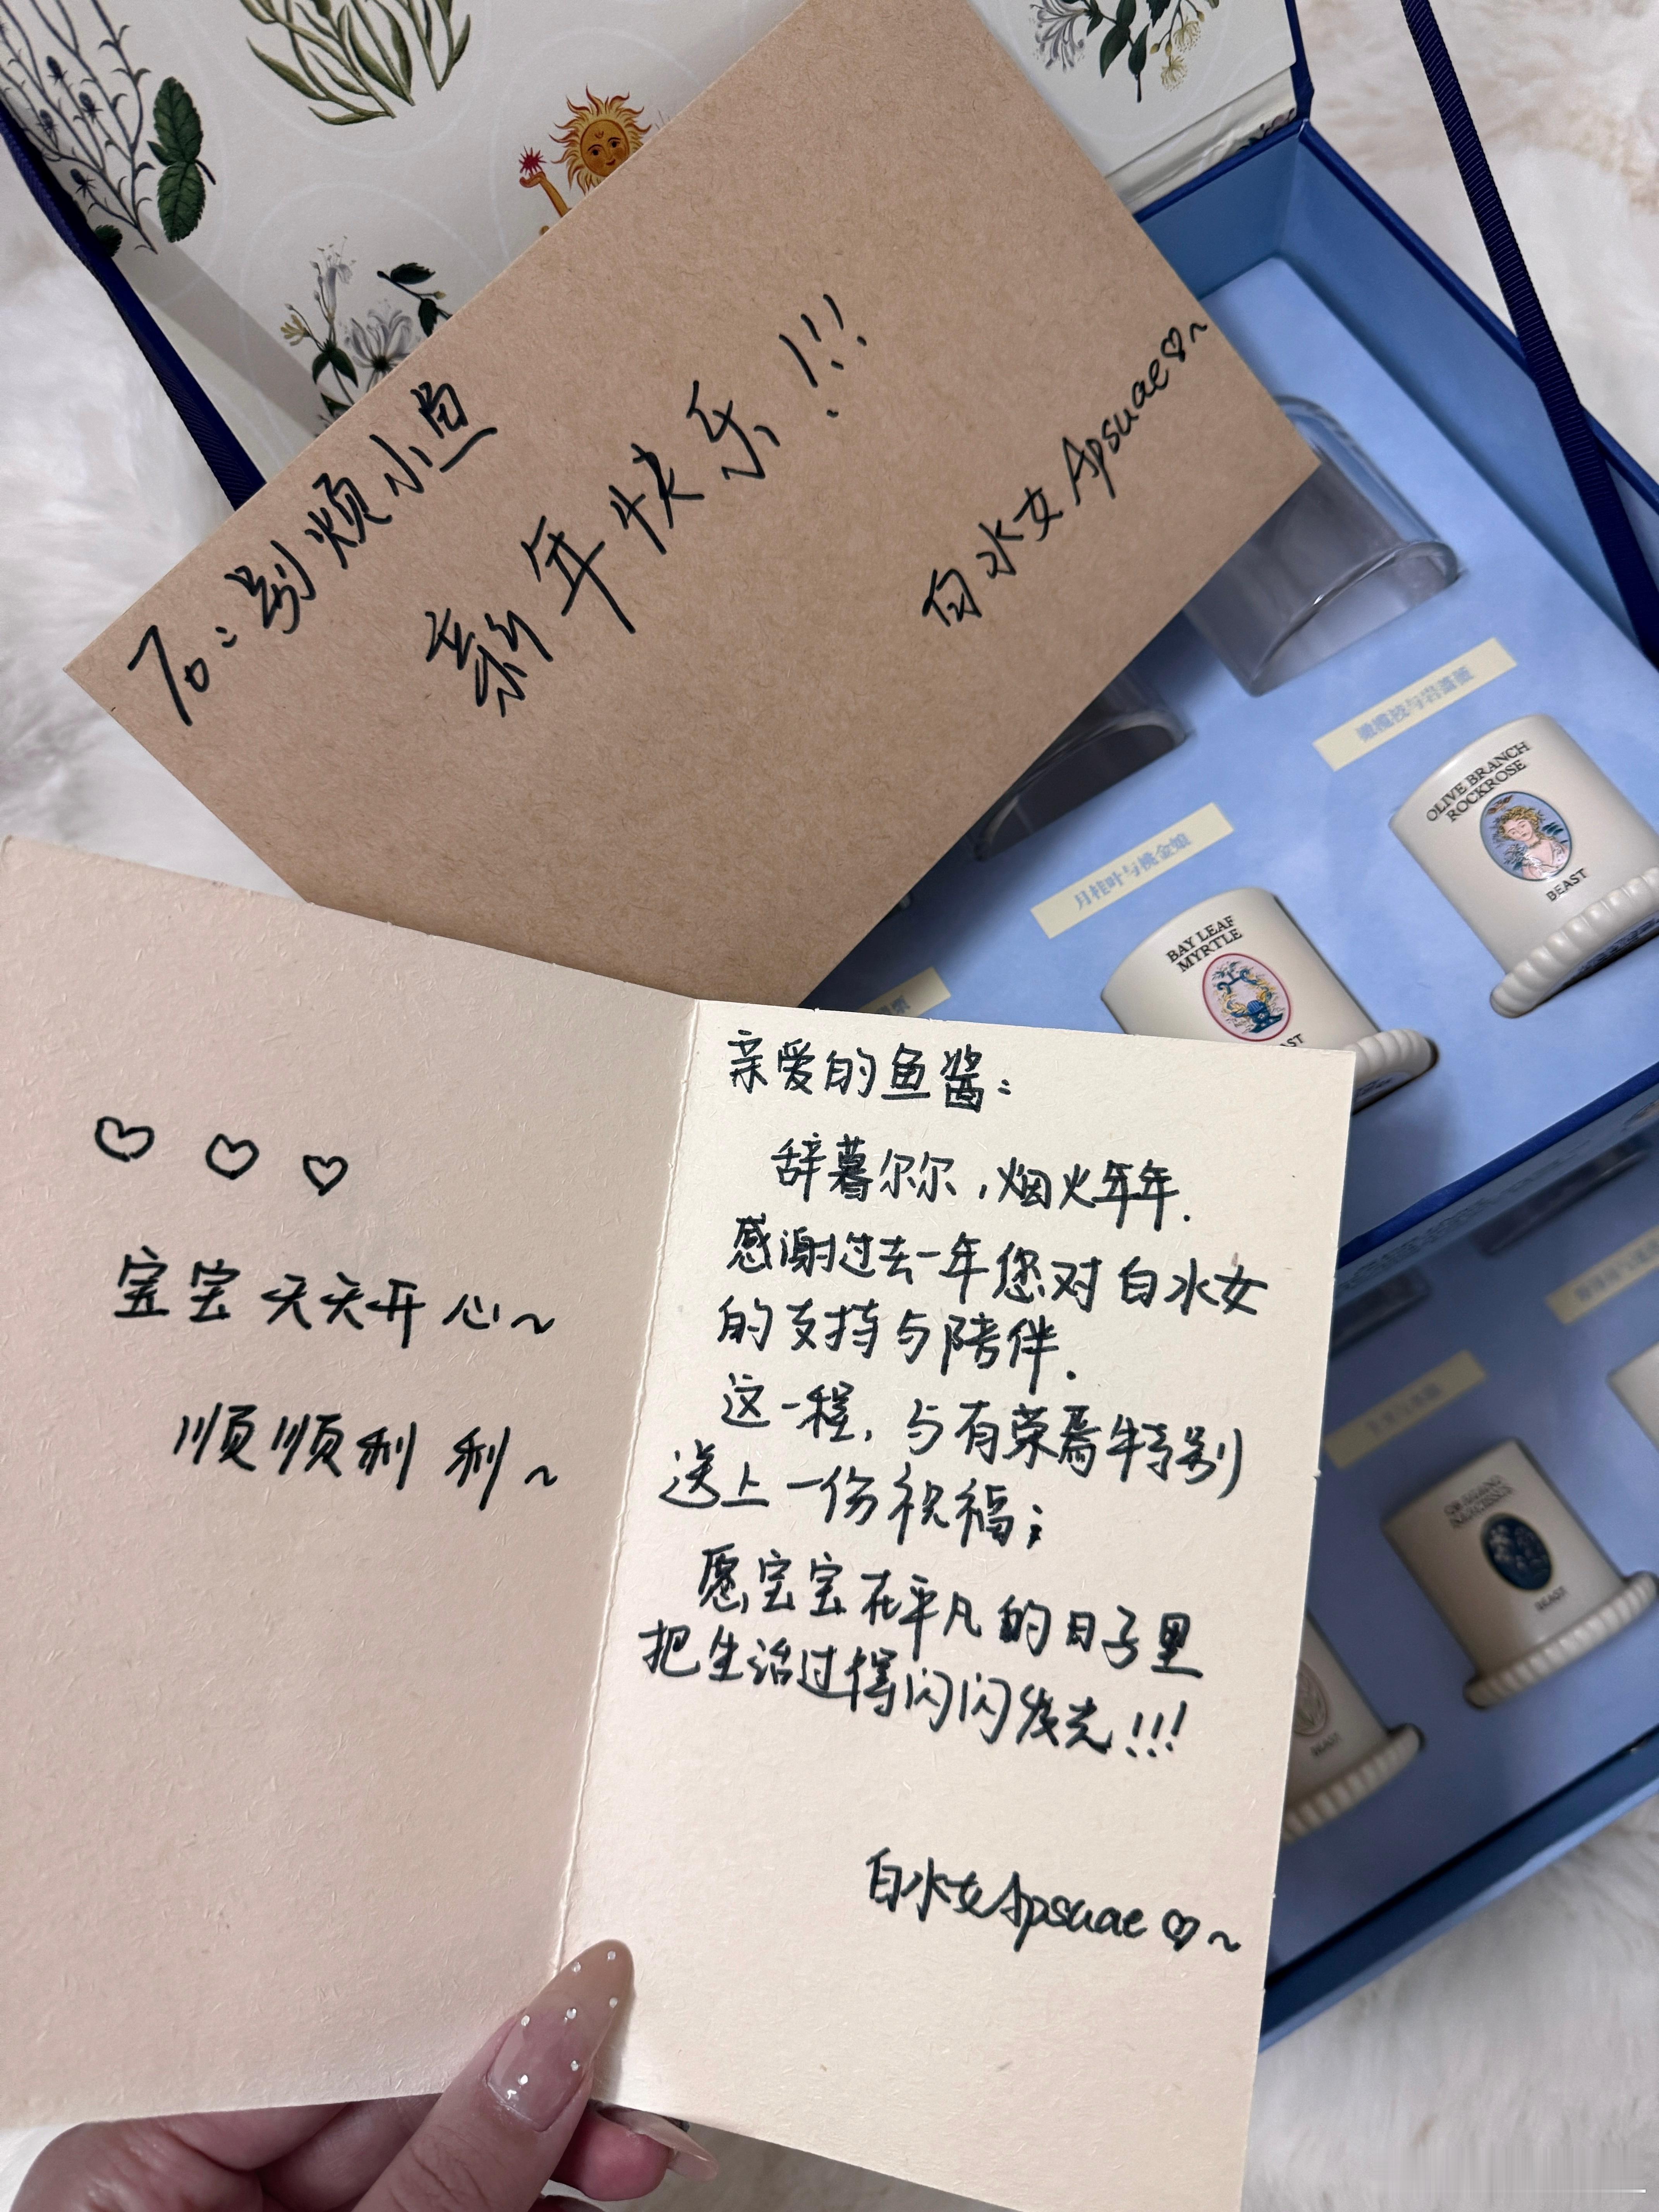 To:别烦小鱼
新年快乐!!!
白水女Apsuae♡~
橄榄枝与岩蔷薇
OLIVE BRANCH
ROCKROSE
BEAST
月桂叶与桃金娘
BAY LEAF
MYRTLE
♡ ♡ ♡
宝宝天天开心~
顺顺利利~
亲爱的鱼酱:
辞暮尔尔,烟火年年.
感谢过去一年您对白水女
的支持与陪伴.
这一程,与有荣焉特别
送上一份祝福;
愿宝宝在平凡的日子里
把生活过得闪闪发光!!!
白水女Apsuae♡~
BEAST
BEAST